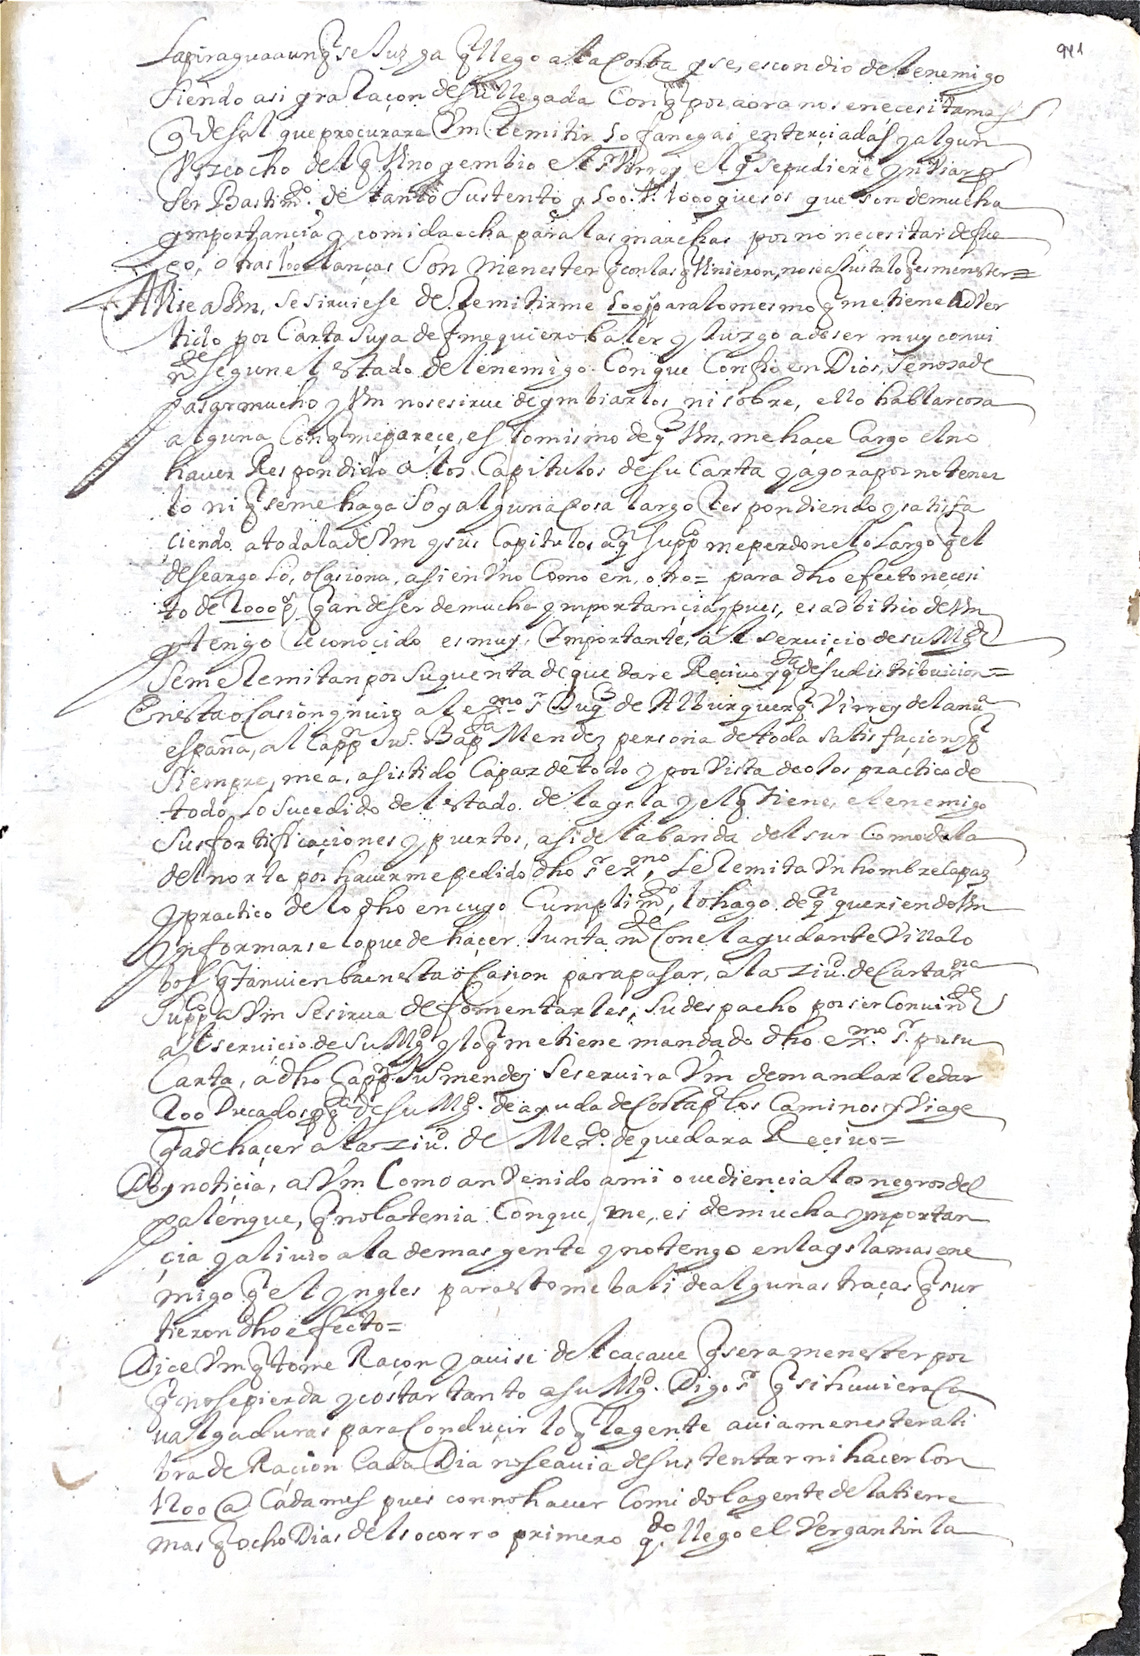 941
La piragua aunq̃ se Juzga q̃ llego a la Costa y se, escondio del enemigo
siendo asi y ra laçon de su llegada Conq̃ por aora no se necesita mas
q̃ de sal que procurara Vm Remitir 50 fanegas enterçiadas y algun
Vizcocho del q̃ Vino y embio el sr Virrey el q̃ se pudiere ynViar
ser Bastimto. de tanto sustento y 500. 1000 quesos que son de mucha
ymportancia y comida echa para las marchas por no necesitar de fue
go, otras 100 lanças son menester q̃ con las q̃ Vinieron, no se a justa lo q̃ es menester=
Auise a Vm, se siruiese de Remitirme 500 p para lo mesmo q̃ me tiene adVer
tido por Carta suya de q̃ me quiero baler y Juzgo a de ser muy conui
nte segun el estado del enemigo. Con que Confio en Dios, se nos a de
pasar mucho y Vm no se sirue de ymbiarlos ni sobre, ello hablar cosa
alguna Conq̃ me parece, es lo mismo de q̃ Vm, me hace Cargo el no
hauer Respondido a los Capitulos de su Carta y agora por no tener
lo ni q̃ se me haga soy alguna Cosa largo Respondiendo y satisfa
ciendo a toda la de Vm y sus Capitulos a q̃ suppco me perdone lo Largo q̃ el
descargo lo, ocasiona, asi en Vno Como en, otro= para dho efecto necesi
to de 1000 p, q̃ an de ser de mucha ymportancia y pues, es adbitrio de Vm
y tengo Reconocido es muy, Importante, al seruicio de su Mgd
se me Remitan por su quenta de que dare Reciuo y qta de su distribucion=
En esta ocasion ynuio al exmo sr Duq̃ de Alburquerq̃ Virrey de la nua
españa, al Cappn Jus. Bapta Mendez persona de toda satisfacion y q̃
siempre, me a, asistido Capaz de todo y por Vista de ojos practico de
todo lo sucedido del estado. de la ysla y el q̃ tiene, el enemigo
sus fortificaciones y puertos, asi de la banda del sur Como de la
del norte por hauerme pedido dho sr exmo, se le Remita Vn hombre Capaz
y practico de lo dho en cuyo Cumplimto, lo hago. de qn queriendo Vm
ynformarse lo puede hacer Junta mte Con el ayudante Villalo
bos q̃ tanuien ba en esta ocasion para pasar, a la ziud. de Cartaxna
suppco a Vm se sirua de fomentarles, su despacho por ser Conuinte
al seruicio de su Mgd y lo q̃ me tiene mandado dho exmo. sr. por su
Carta, a dho Cappn Jus mendez se seruira Vm de mandarle dar
200 Ducados p qta de su Mgd. de ayuda de Costa pa los Caminos y Viage
q̃ a de hacer a la ziud. de Mexco. de quedara Reciuo=
Doy noticia, a Vm Como an Venido a mi ouediencia los negros del
palenque, q̃ no la tenia Conque, me,, es de mucha ymportan
cia y aliuio a la demas gente y no tengo en la ysla mas ene
migo q̃ el yngles para esto me bali de algunas traças q̃ sur
tieron dho efecto=
Dice Vm q̃ tome Raçon y auise del caçaue q̃ sera menester por
q̃ no se pierda y costar tanto a su Mgd. Digo sr q̃ si huuiera Ca
ualgaduras para Conducir lo q̃ la gente auia menester a li
bra de Racion Cada Dia no se auia de sustentar ni hacer con
1200 @ Cada mes pues con no hauer Comido la gente de la tierra
mas q̃ ocho Dias del socorro primero qdo llego el Vergantin la